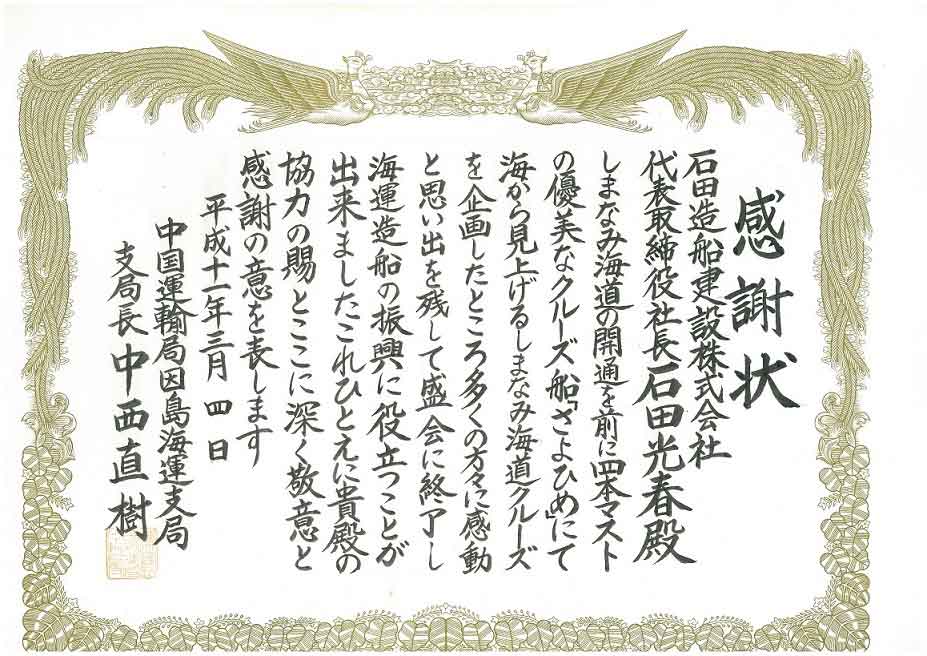 感謝状
石田造船建設株式会社
代表取締役社長石田光春殿
しまなみ海道の開通を前に四本マスト
の優美なクルーズ船『さよひめ』にて
海から見上げるしまなみ海道クルーズ
を企画したところ多くの方々に感動
と思い出を残して盛会に終了し
海運造船の振興に役立つことが
出来ましたこれひとえに貴殿の
協力の賜とここに深く敬意と
感謝の意を表します
平成十一年三月四日
中国運輸局因島海運支局
支局長中西直樹